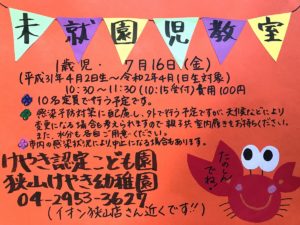 未就園児教室
1歳児・ 7月16日(金)
(平成31年4月2日生〜令和2年4月1日生対象)
10:30〜11:30 (10:15受付) 費用100円
10名定員で行う予定です。
感染予防対策に配慮し、外で行う予定ですが、天候などにより
変更になる場合も考えられますので親子共、室内履きをお持ちください。
また、水分も各自ご用意ください。
市内の感染状況により中止になる場合もあります。
けやき認定こども園
狭山けやき幼稚園
04-2953-3627
(イオン狭山店さん近くです!!)
たのしん
でね!